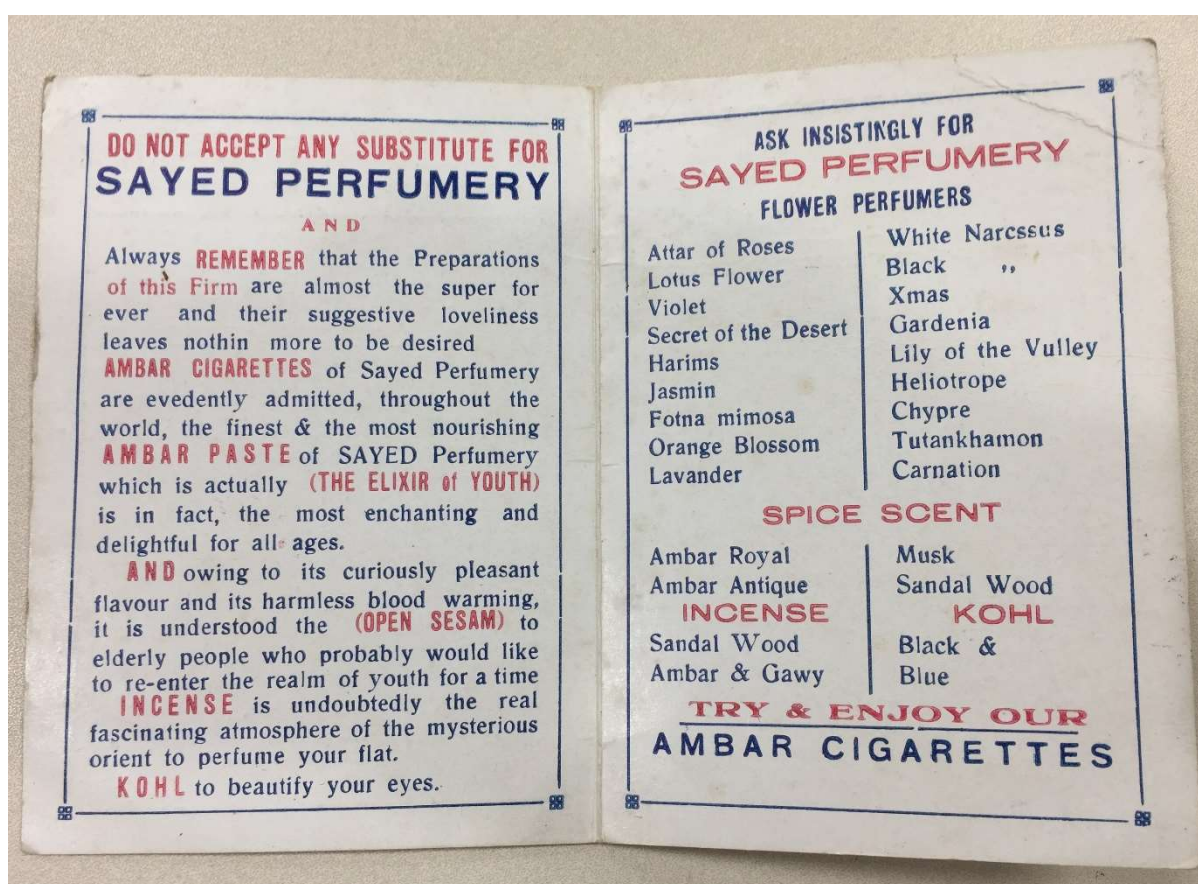 DO NOT ACCEPT ANY SUBSTITUTE FOR
SAYED PERFUMERY
AND
Always REMEMBER that the Preparations
of this Firm are almost the super for
ever and their suggestive loveliness
leaves nothin more to be desired
AMBAR CIGARETTES of Sayed Perfumery
are evedently admitted, throughout the
world, the finest & the most nourishing
AMBAR PASTE of SAYED Perfumery
which is actually (THE ELIXIR of YOUTH)
is in fact, the most enchanting and
delightful for all ages.
AND owing to its curiously pleasant
flavour and its harmless blood warming,
it is understood the (OPEN SESAM) to
elderly people who probably would like
to re-enter the realm of youth for a time
INCENSE is undoubtedly the real
fascinating atmosphere of the mysterious
orient to perfume your flat.
KOHL to beautify your eyes.
ASK INSISTINGLY FOR
SAYED PERFUMERY
FLOWER PERFUMERS
Attar of Roses
Lotus Flower
Violet
Secret of the Desert
Harims
Jasmin
Fotna mimosa
Orange Blossom
Lavander
White Narcssus
Black ,,
Xmas
Gardenia
Lily of the Vulley
Heliotrope
Chypre
Tutankhamon
Carnation
SPICE SCENT
Ambar Royal
Ambar Antique
Musk
Sandal Wood
INCENSE
Sandal Wood
Ambar & Gawy
KOHL
Black &
Blue
TRY & ENJOY OUR
AMBAR CIGARETTES